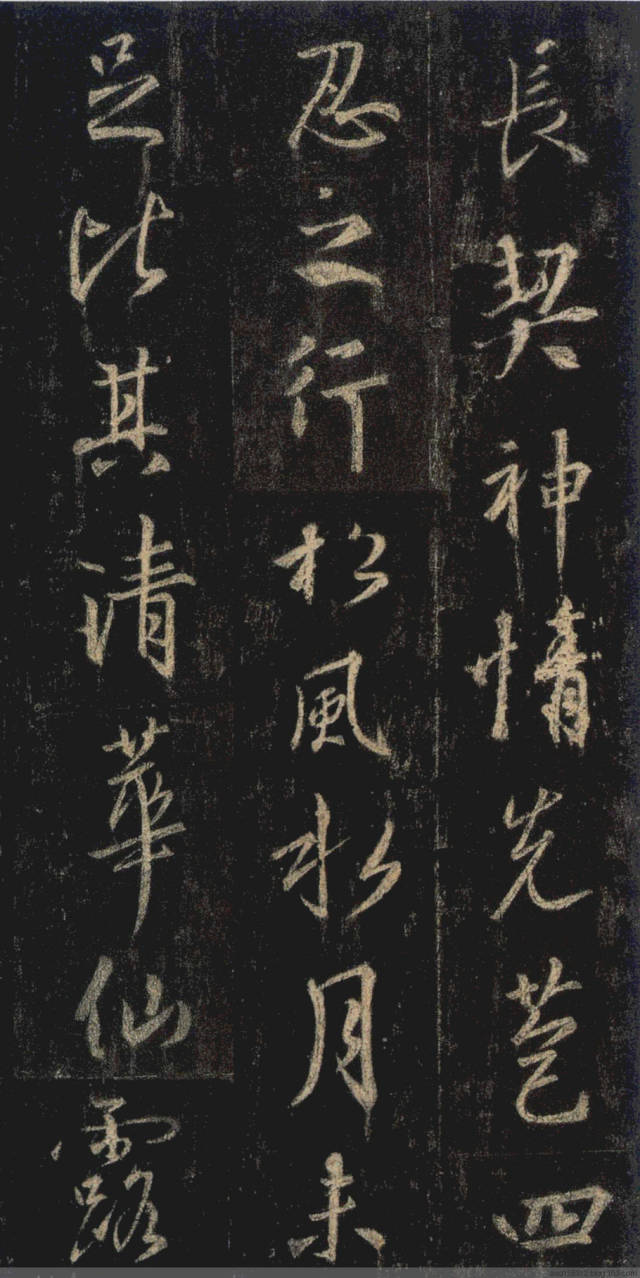 長契神情先苞四
忍之行松風水月未
足比其清華仙露